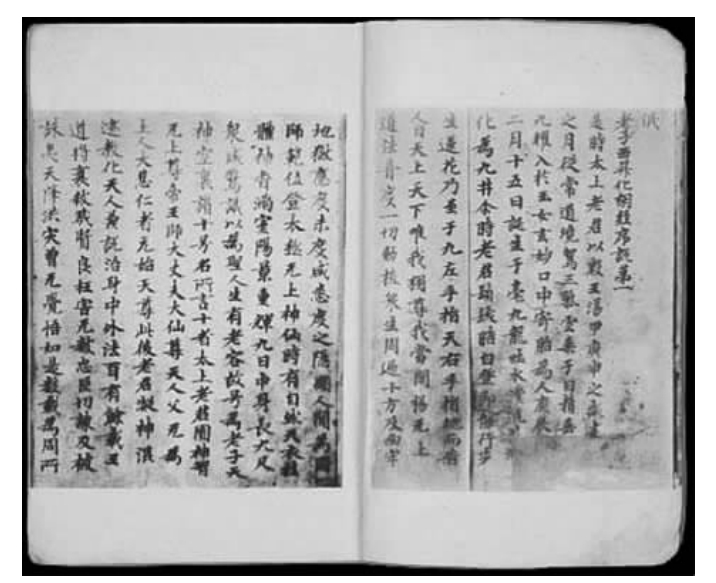 老子西昇化胡經序說第一
是時太上老君以殷王湯甲庚申之歲建
之月從常道境駕三氣雲乘于日精垂
九耀入於玉女玄妙口中寄胎為人庚辰
二月十五日誕生于亳九龍吐水灌洗
化為九井尒時老君鬚髮皓白登即能行步
生蓮花乃至于九左手指天右手指地而告
人曰天上天下唯我獨尊我當開揚无上
道法普度一切動植衆生周遍十方及幽牢
地獄應度未度咸悉度之隱顯人間為國
師範位登太極无上神仙時有自然天衣挂
體神香滿室陽景重輝九日中身長九尺
衆咸驚議以為聖人生有老容故号為老子天
神空裏讚十号名所言十者太上老君圓神智
无上尊帝王師大丈夫大仙尊天人父无為
上人大慈仁者元始天尊此後老君凝神混
迹教化天人兼說治身中外法百有餘載王
道將衰殺戮賢良枉害无數忠臣切諫反被
誅夷天降洪灾曾无覺悟如是數載為周所